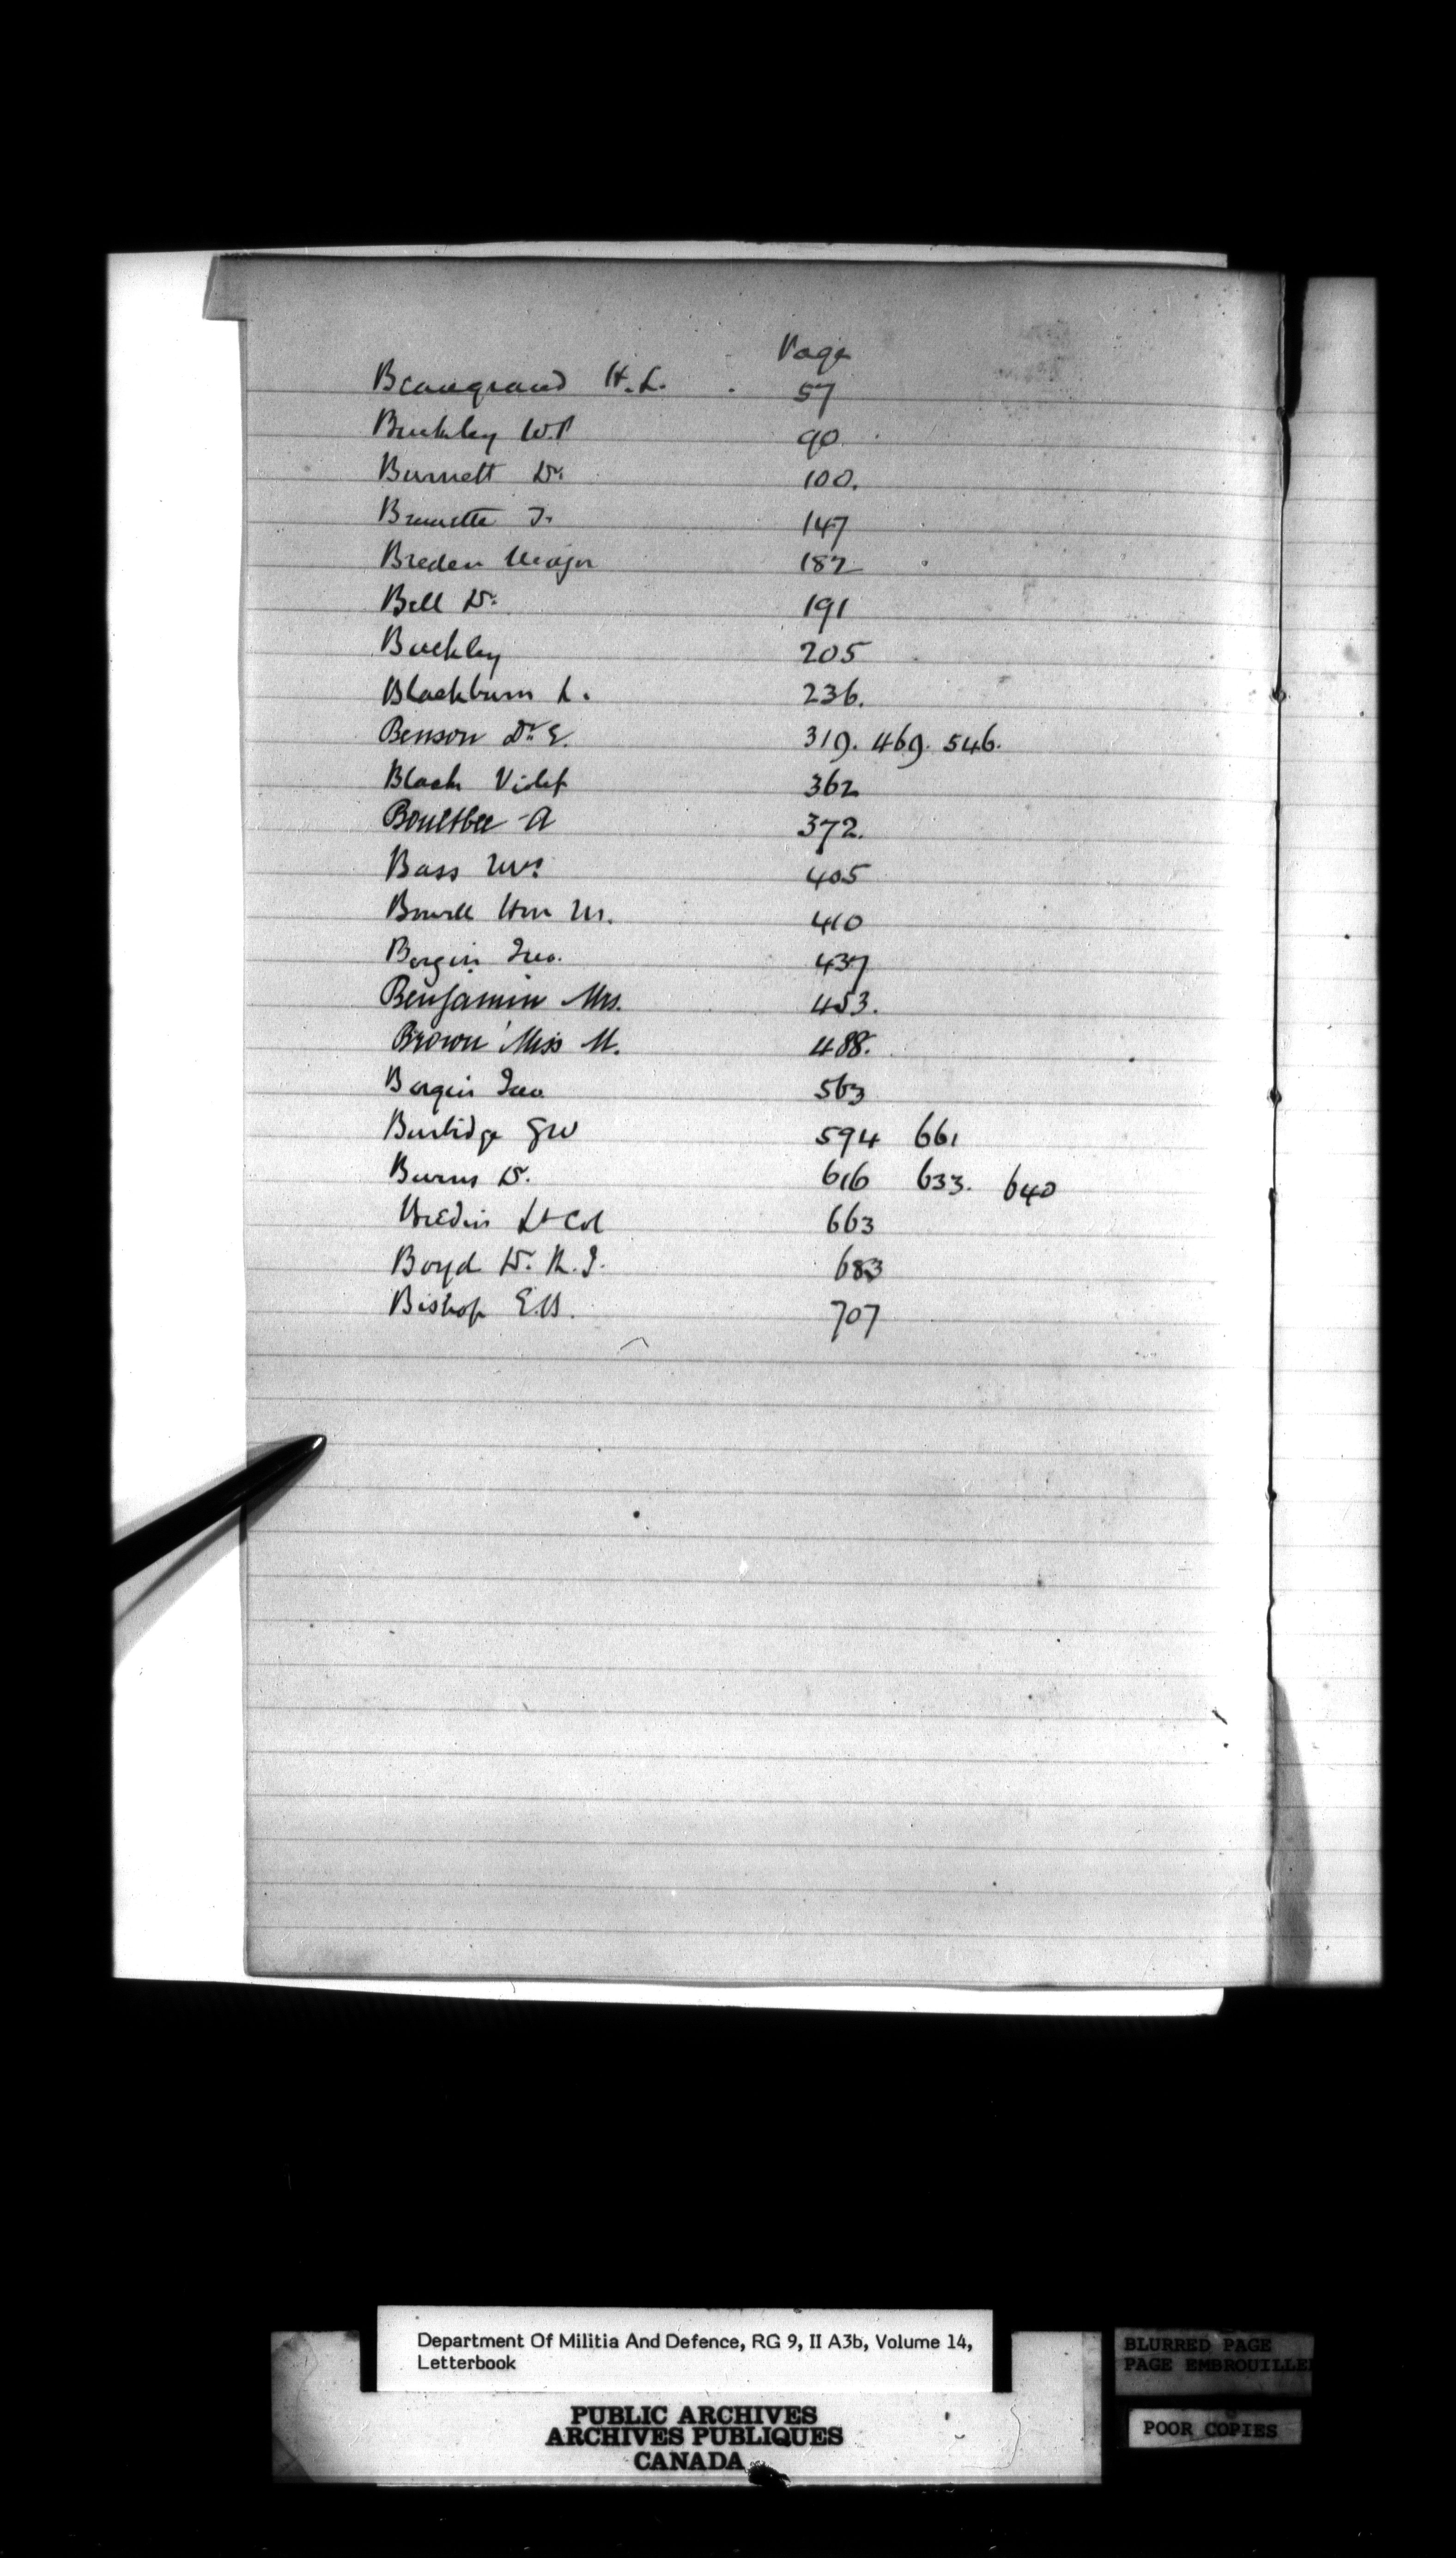 Page
Beaugrand H. L. 57
Buckley W.P 90
Burnett Dr. 100.
Brunette J. 147
Breden Major 182
Bell Dr. 191
Buckley 205
Blackburn L. 236.
Benson Dr. E. 319. 469. 546.
Black Violet 362
Boultbee A 372.
Bass Mrs. 405
Bowell Hon M. 410
Bergin Jno. 437
Benjamin Mrs. 453.
Brown Miss M. 488.
Bergin Jno 563
Burbidge GW 594 661
Burns Dr. 616 633. 640
Bredin Lt Col 663
Boyd Dr. 683
Bishop E.B. 707
Department Of Militia And Defence, RG 9, II A3b, Volume 14,
Letterbook
PUBLIC ARCHIVES
ARCHIVES PUBLIQUES
CANADA
BLURRED PAGE
PAGE EMBROUILLEE
POOR COPIES